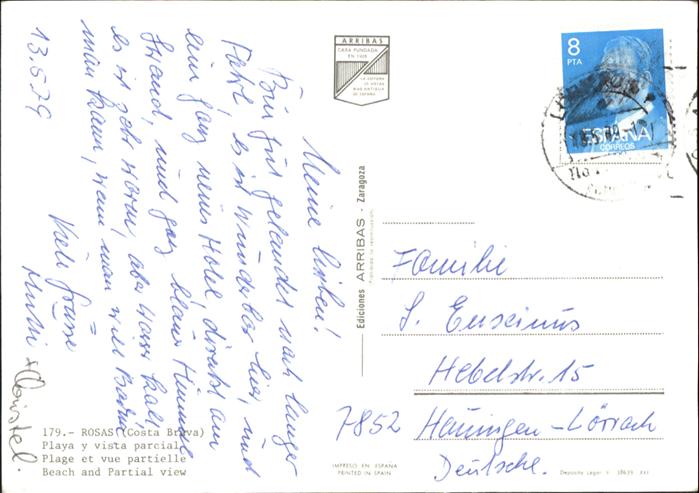 13.5.79
Meine lieben!
Bin gut gelandet nach langer
Fahrt, es ist wunderbar hier, und
ein ganz neues Hotel, direkt am
Strand, und ganz blauer Himmel
es ist sehr warm, aber Wasser kalt,
man kann, wenn man will Baden
Viele Grüsse
Christel.
179.- ROSAS (Costa Brava)
Playa y vista parcial
Plage et vue partielle
Beach and Partial view
ARRIBAS
CASA FUNDADA
EN 1905
LA EDITORA
DE HUECO
MAS ANTIGUA
DE ESPAÑA
Ediciones ARRIBAS - Zaragoza
Prohibida la reproducción
IMPRESO EN ESPAÑA
PRINTED IN SPAIN
Deposito Legal Z 38635 XXI
8
PTA
ESPAÑA
CORREOS
Familie
S. Enscinus
Hebelstr. 15
7852 Hauingen-Lörrach
Deutsche.